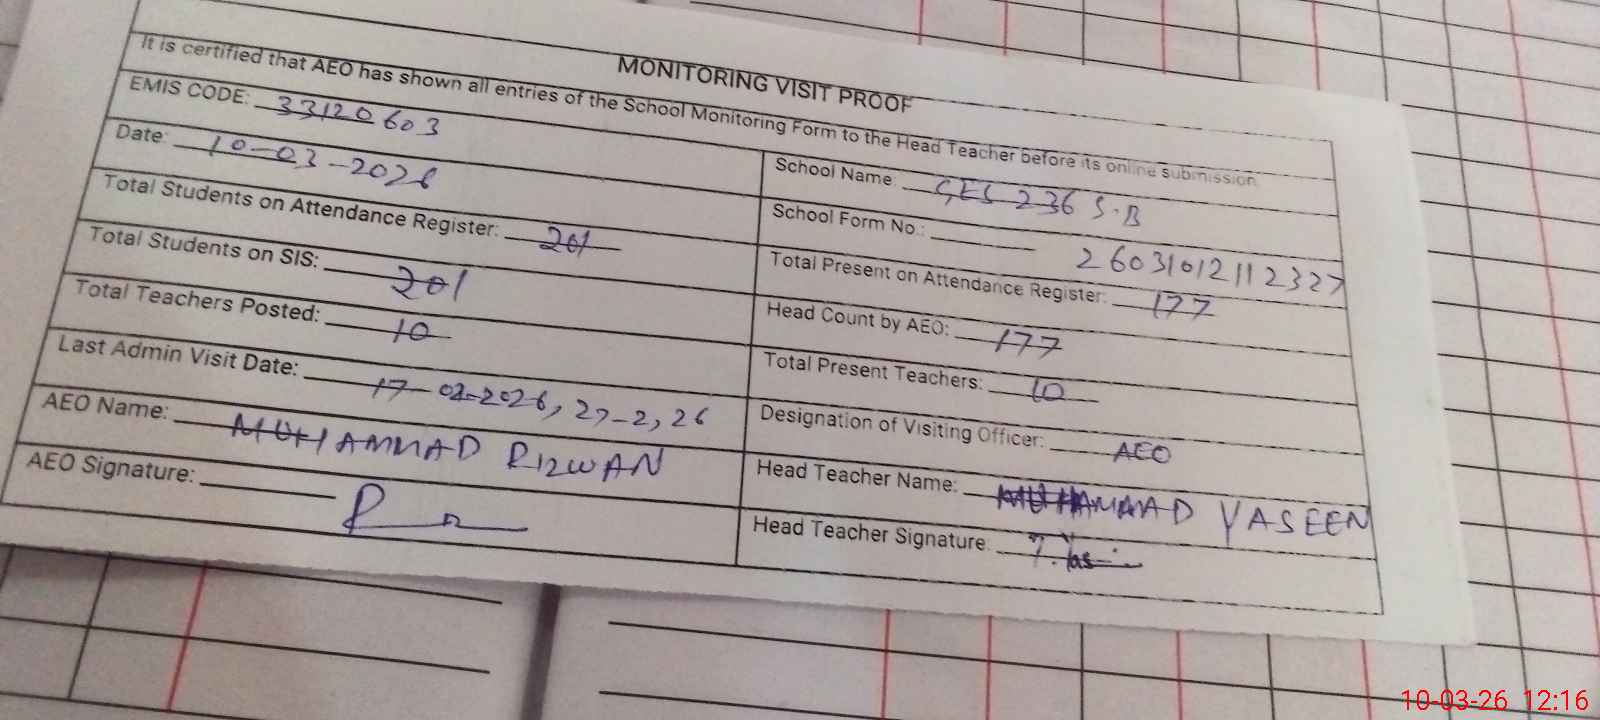 MONITORING VISIT PROOF
It is certified that AEO has shown all entries of the School Monitoring Form to the Head Teacher before its online submission
EMIS CODE: 33120603
School Name: GES 236 S.B
Date: 10-03-2026
School Form No.: 26031012112327
Total Students on Attendance Register: 201
Total Present on Attendance Register: 177
Total Students on SIS: 201
Head Count by AEO: 177
Total Teachers Posted: 10
Total Present Teachers: 10
Last Admin Visit Date: 17-02-2026, 27-2, 26
Designation of Visiting Officer: AEO
AEO Name: MUHAMMAD RIZWAN
Head Teacher Name: MUHAMMAD YASEEN
AEO Signature:
Head Teacher Signature:
10-03-26 12:16